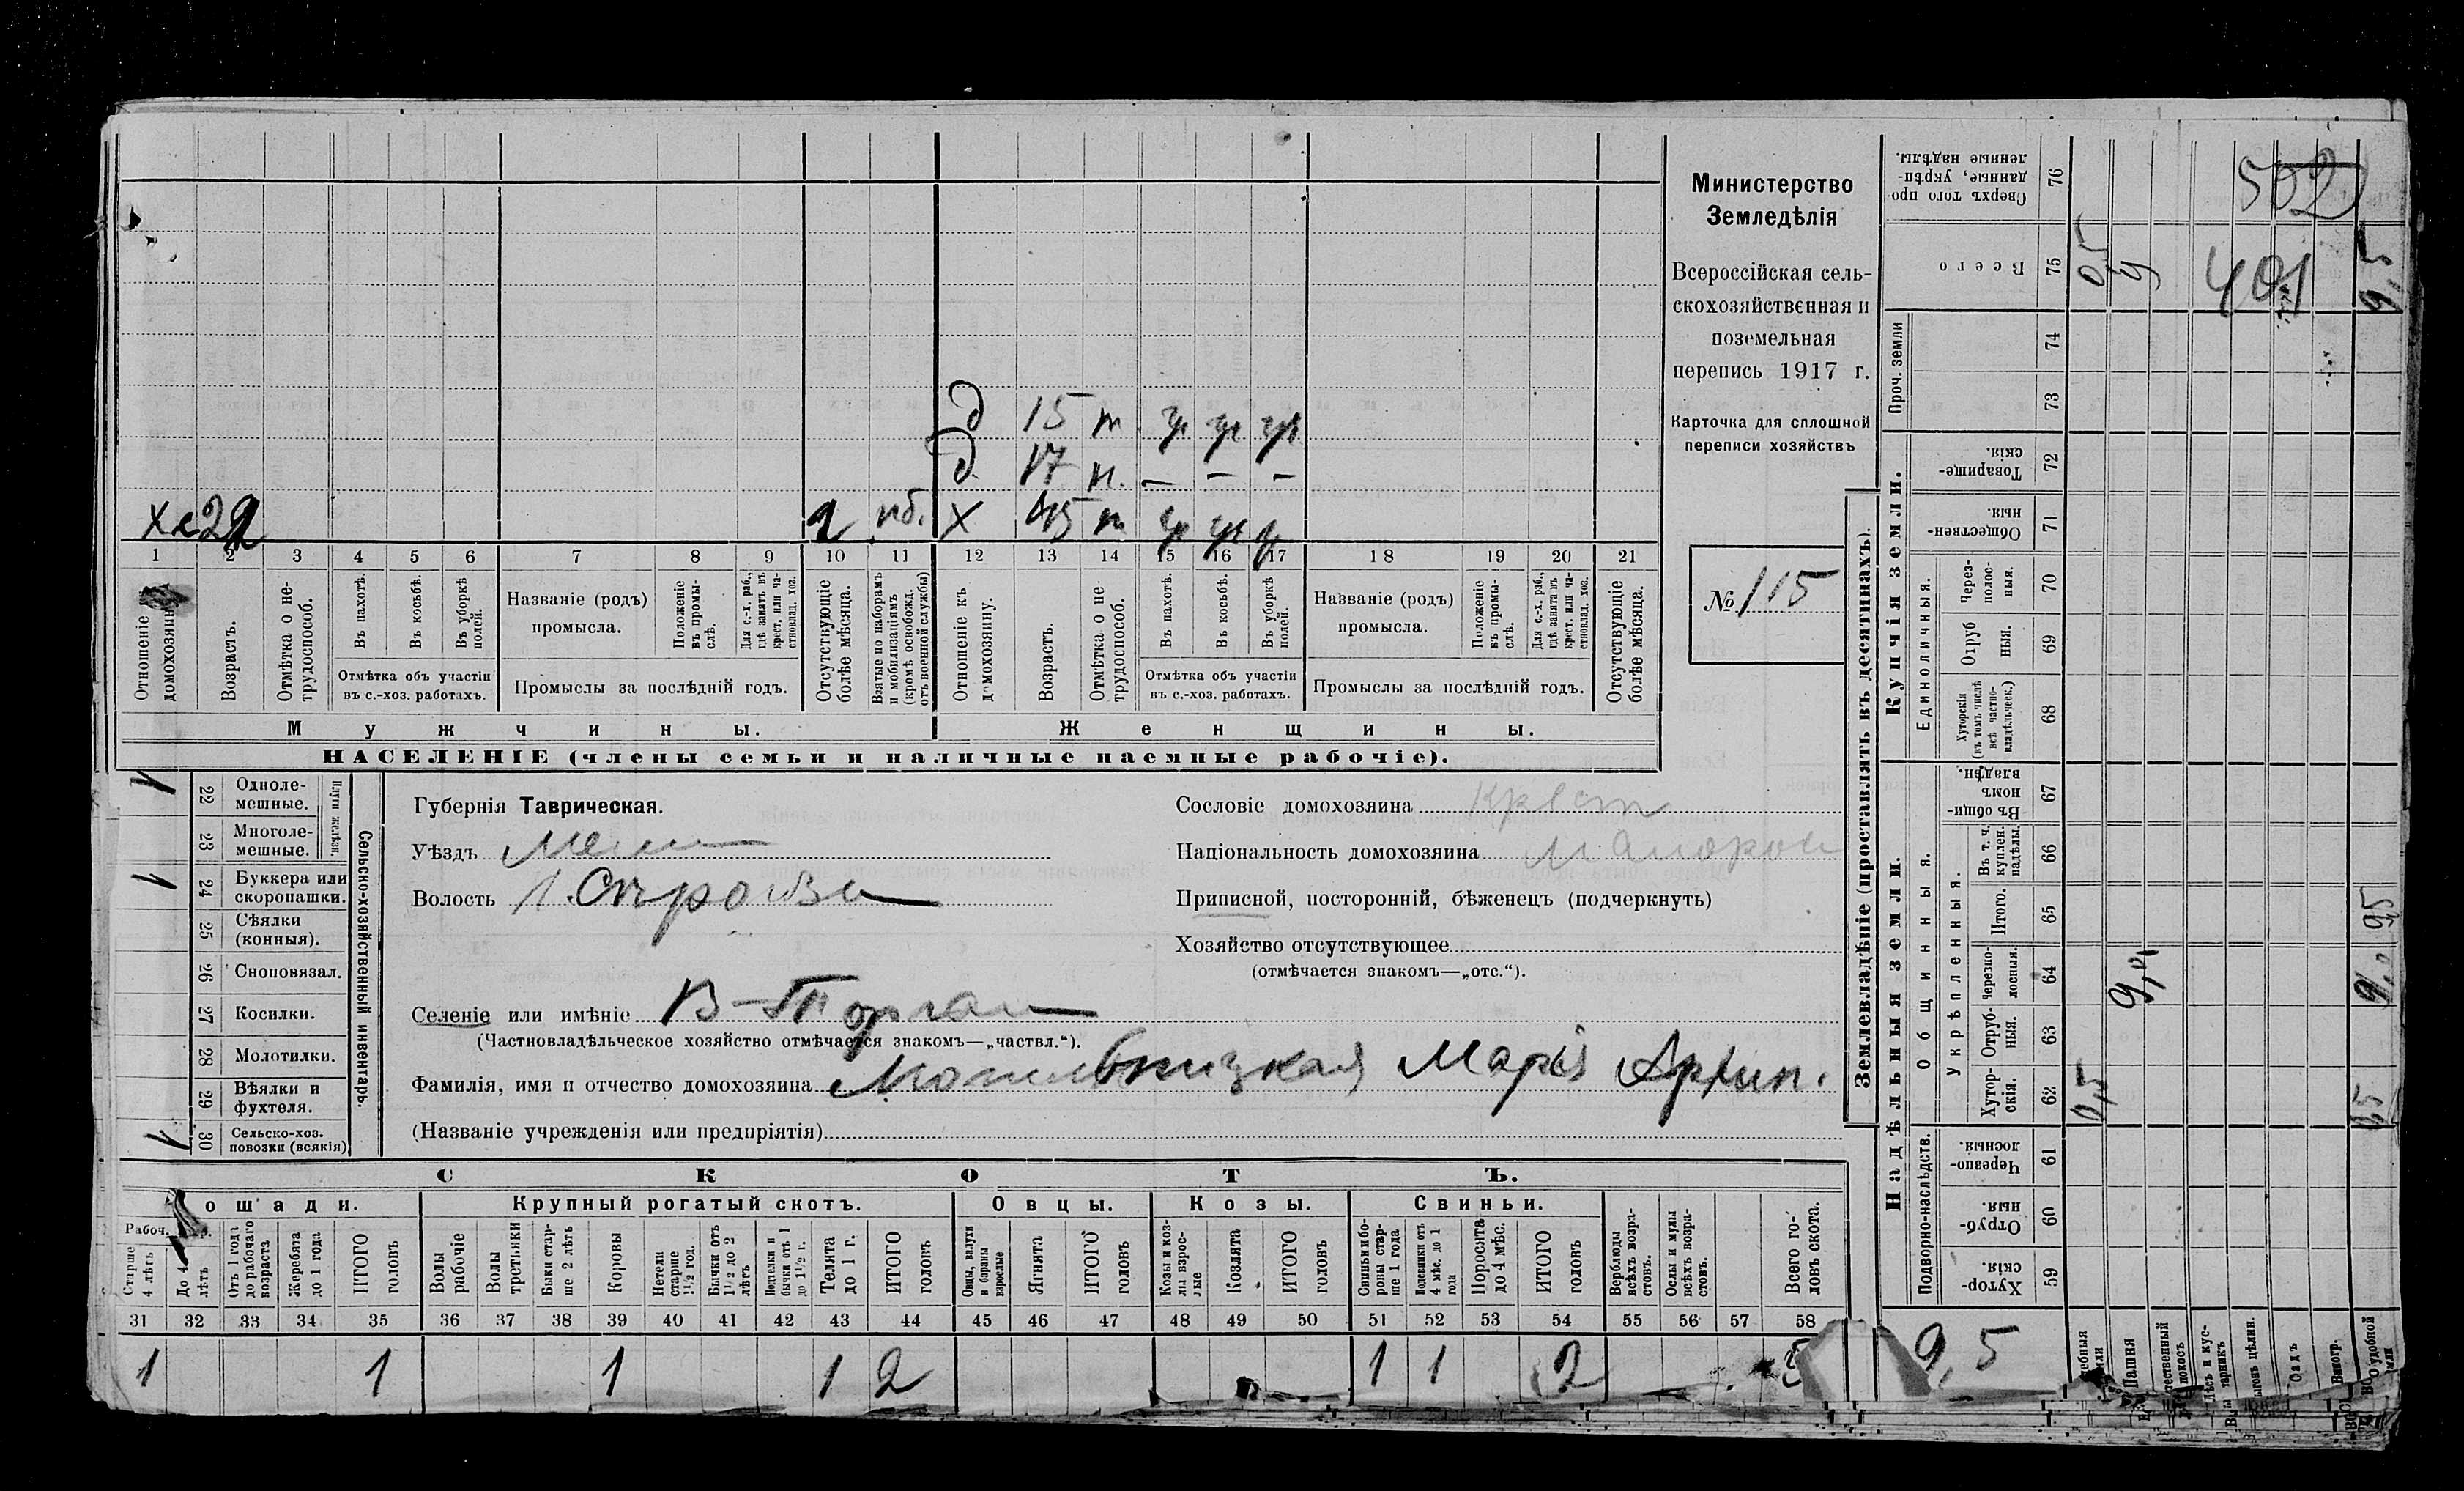 Министерство
Земледѣлія
Всероссійская сель-
скохозяйственная и
поземельная
перепись 1917 г.
Карточка для сплошной
переписи хозяйствъ
№ 115
д 15 н
д 17 н. — — —
х 45 н
1 2 3 4 5 6 7 8 9 10 11 12 13 14 15 16 17 18 19 20 21
Отношеніе къ домохозяину.
Возрастъ.
Отмѣтка о не-трудоспособ.
Въ пахотѣ.
Въ косьбѣ.
Въ уборкѣ полей.
Отмѣтка объ участіи въ с.-хоз. работахъ.
Названіе (родъ) промысла.
Положеніе въ промы-слѣ.
Для с.-х. раб., гдѣ занятъ въ крест. или ча-стновлад. хоз.
Промыслы за послѣдній годъ.
Отсутствующіе болѣе мѣсяца.
Взятые по наборамъ и мобилизаціямъ (кромѣ освобожд. отъ военной службы)
Отношеніе къ домохозяину.
Возрастъ.
Отмѣтка о не трудоспособ.
Въ пахотѣ.
Въ косьбѣ.
Въ уборкѣ полей.
Отмѣтка объ участіи въ с.-хоз. работахъ.
Названіе (родъ) промысла.
Положеніе къ промы-слѣ.
Для с.-х. раб., гдѣ занята въ крест. или ча-стновлад. хоз.
Промыслы за послѣдній годъ.
Отсутствующіе болѣе мѣсяца.
Мужчины.
Женщины.
НАСЕЛЕНІЕ (члены семьи и наличные наемные рабочіе).
Сельско-хозяйственный инвентарь.
Плуги желѣзн.
22 Одноле-мешные. 1
23 Многоле-мешные.
24 Буккера или скоропашки. 1
25 Сѣялки (конныя).
26 Сноповязал.
27 Косилки.
28 Молотилки.
29 Вѣялки и фухтеля.
30 Сельско-хоз. повозки (всякія) 1
Губернія Таврическая.
Уѣздъ
Волость
Селеніе или имѣніе
(Частновладѣльческое хозяйство отмѣчается знакомъ—„частвл.“).
Фамилія, имя и отчество домохозяина Могильницкая Марія
(Названіе учрежденія или предпріятія)
Сословіе домохозяина Крест
Національность домохозяина Малорос
Приписной, посторонній, бѣженецъ (подчеркнуть)
Хозяйство отсутствующее
(отмѣчается знакомъ—„отс.“).
СКОТЪ.
Крупный рогатый скотъ.
Овцы.
Козы.
Свиньи.
Рабоч.
Старше 4 лѣтъ
До 4 лѣтъ
Отъ 1 года до рабочаго возраста
Жеребята до 1 года
ИТОГО головъ
Волы рабочіе
Волы третьяки
Быки стар-ше 2 лѣтъ
Коровы
Нетели старше 1½ год.
Бычки отъ 1½ до 2 лѣтъ
Подтелки и бычки отъ 1 до 1½ г.
Телята до 1 г.
ИТОГО головъ
Овцы, валухи и бараны взрослые
Ягнята
ИТОГО головъ
Козы и коз-лы взрос-лые
Козлята
ИТОГО головъ
Свиньи и бо-ровы стар-ше 1 года
Подсвинки отъ 4 мѣс. до 1 года
Поросята до 4 мѣс.
ИТОГО головъ
Верблюды всѣхъ возра-стовъ.
Ослы и мулы всѣхъ возра-стовъ.
Всего го-ловъ скота.
31 32 33 34 35 36 37 38 39 40 41 42 43 44 45 46 47 48 49 50 51 52 53 54 55 56 57 58
1 1 1 1 2 1 1 2 5
Землевладѣніе (проставлять въ десятинахъ).
Надѣльныя земли.
Купчія земли.
Проч. земли
Подворно-наслѣдств.
Общинныя.
Укрѣпленныя.
Единоличныя.
59 Хутор-скія.
60 Отруб-ныя.
61 Черезпо-лосныя.
62 Хутор-скія.
63 Отруб-ныя.
64 Черезпо-лосныя.
65 Итого.
66 Въ т. ч. куплен. надѣлы.
67 Въ общи-номъ владѣн.
68 Хуторскія (въ томъ числѣ всѣ частно-владѣльческ.)
69 Отруб ныя.
70 Через-полос-ныя.
71 Обществен-ныя.
72 Товарище-скія.
73
74
75 Всего
76 Сверхъ того про-данные, укрѣп-ленные надѣлы.
0,5
9,0
0,5
9,0
9,5
0,5
9
9,5
502
401
9,5
Пашня
Садъ
Виногр.